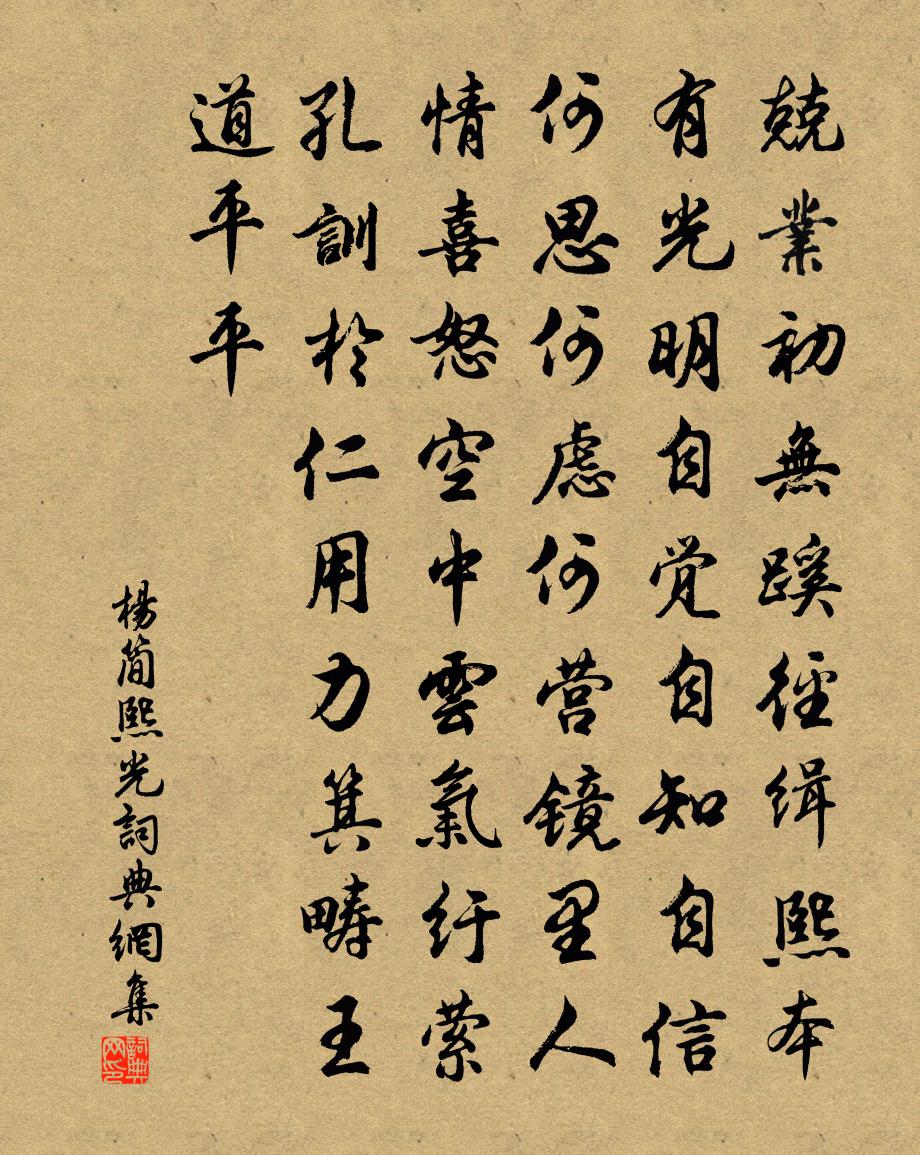 兢業初無蹊徑緝熙本
有光明自覺自知自信
何思何慮何營鏡里人
情喜怒空中雲氣紆縈
孔訓於仁用力箕疇王
道平平
楊簡熙光詞典網集
詞典网印